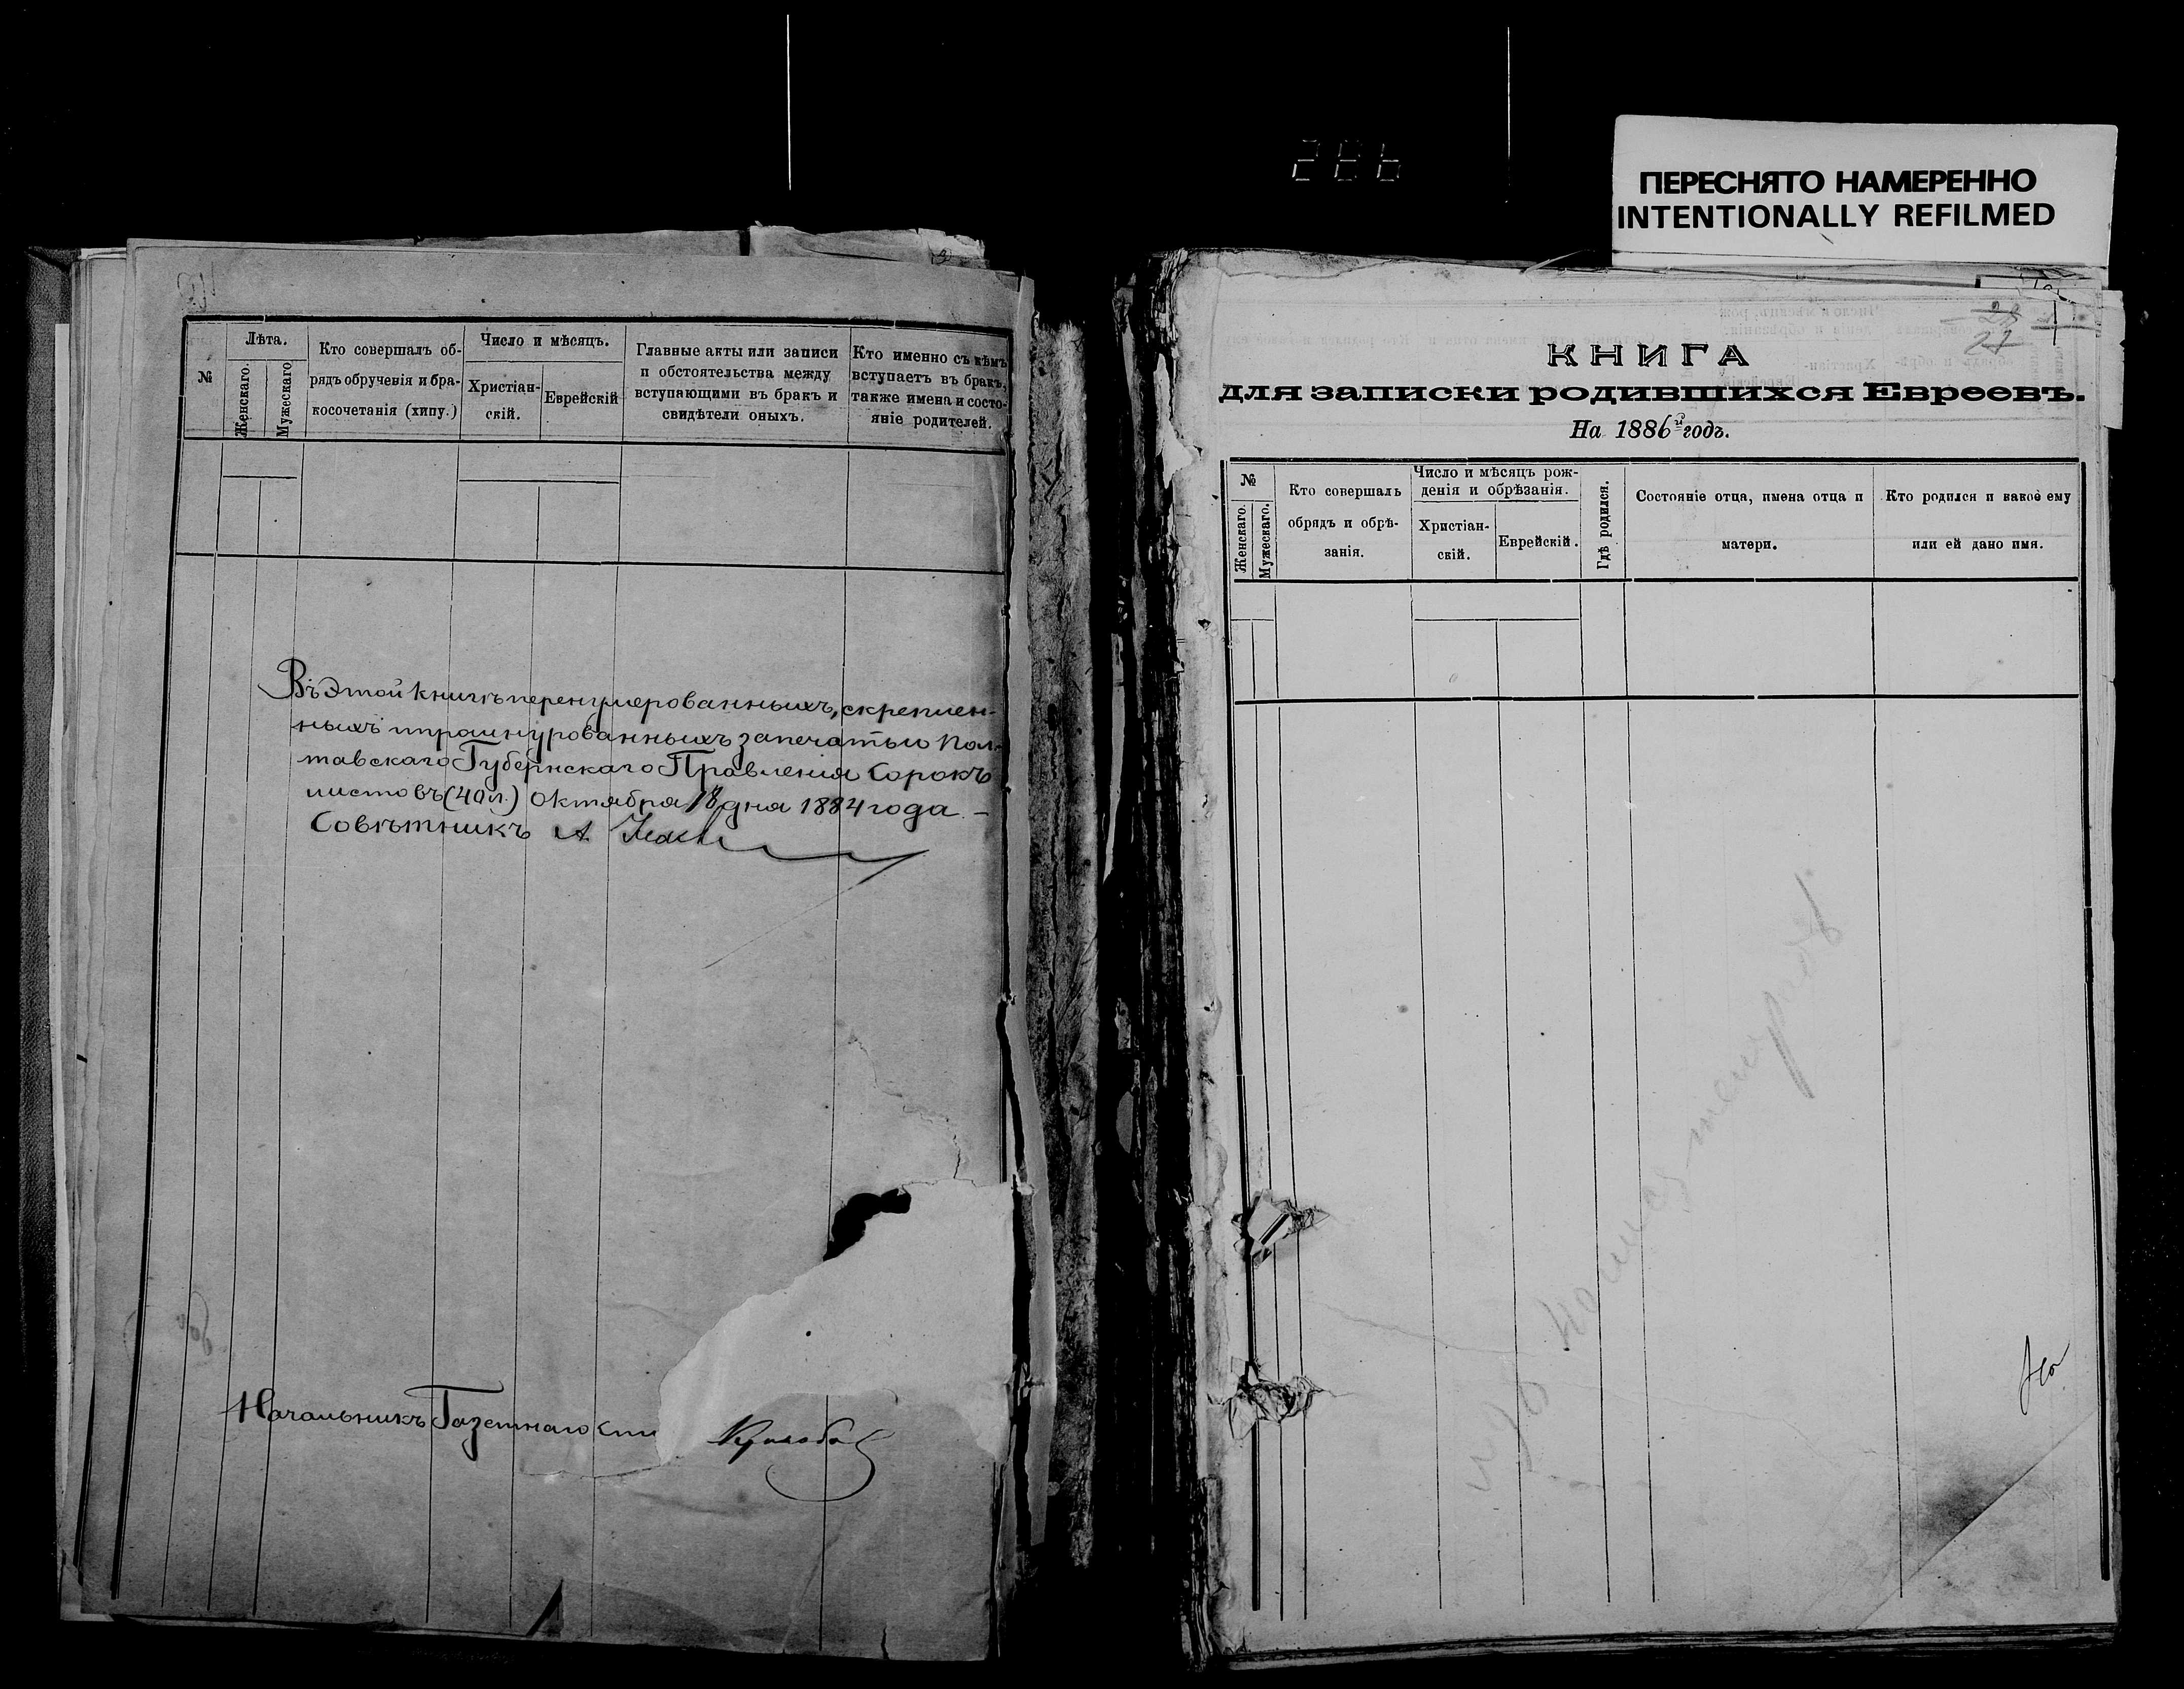 286
ПЕРЕСНЯТО НАМЕРЕННО
INTENTIONALLY REFILMED
№
Лѣта.
Женскаго.
Мужескаго
Кто совершалъ об-
рядъ обрученія и бра-
косочетанія (хипу.)
Число и мѣсяцъ.
Христіан-
скій.
Еврейскій
Главные акты или записи
п обстоятельства между
вступающими въ бракъ и
свидѣтели оныхъ.
Кто именно съ кѣмъ
вступаетъ въ бракъ,
также имена и состо-
яніе родителей.
Въ этой книгѣ перенумерованныхъ, скреплен-
ныхъ и прошнурованныхъ за печатью Пол-
тавскаго Губернскаго Правленія сорокъ
листовъ (40 л.) Октября 18 дня 1884 года. –
Совѣтникъ А
Начальникъ Газетнаго Сто
27
КНИГА
для записки родившихся Евреевъ.
На 1886й годъ.
№
Женскаго.
Мужескаго.
Кто совершалъ
обрядъ и обрѣ-
занія.
Число и мѣсяцъ рож-
денія и обрѣзанія.
Христіан-
скій.
Еврейскій.
Гдѣ родился.
Состояніе отца, имена отца и
матери.
Кто родился и какое ему
или ей дано имя.